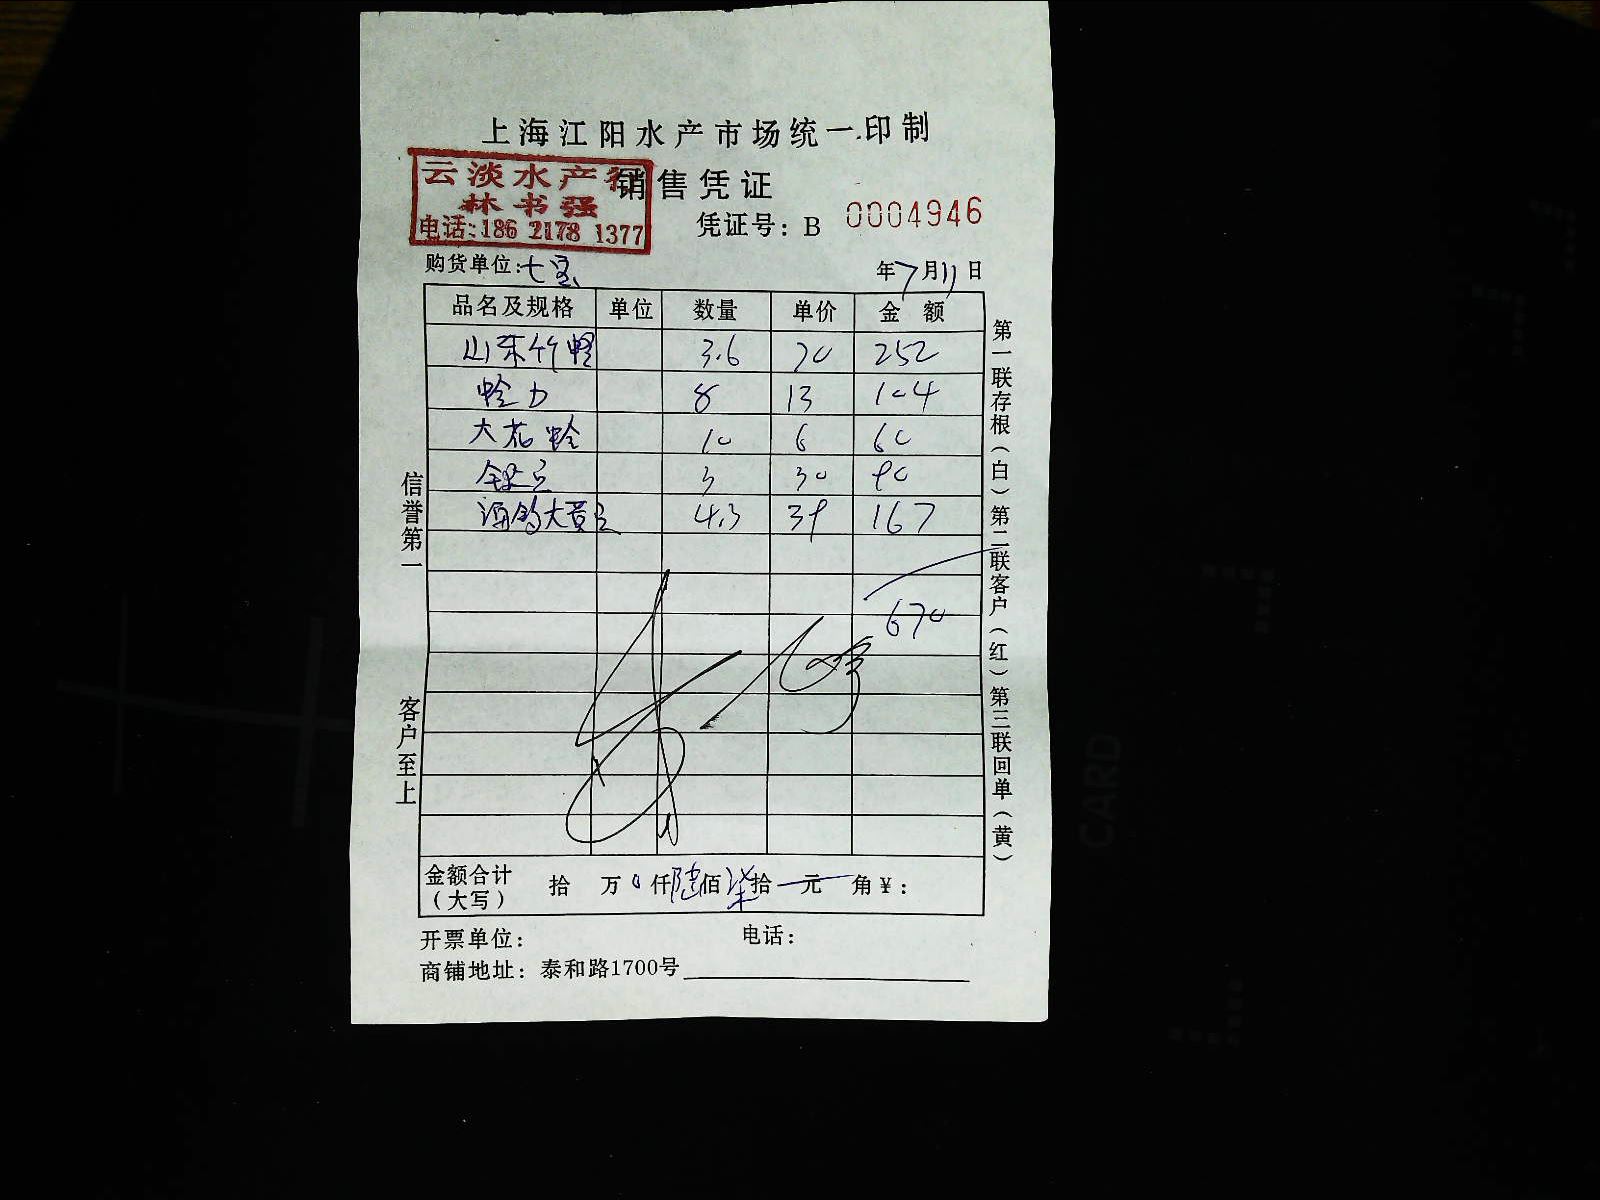 上海江阳水产市场统一印制
云淡水产行
林书强
电话:186 2178 1377
销售凭证
凭证号：B 0004946
购货单位:七宝
年7月11日
品名及规格 单位 数量 单价 金 额
山东竹蛏 3.6 70 252
蛤力 8 13 104
大花蛤 10 6 60
3 30 90
大黄 4.3 39 167
670
金额合计（大写） 拾 万 0 仟 陆 佰 柒 拾 元 角 ￥：
开票单位： 电话：
商铺地址：泰和路1700号
信誉第一
客户至上
第一联存根（白）第二联客户（红）第三联回单（黄）